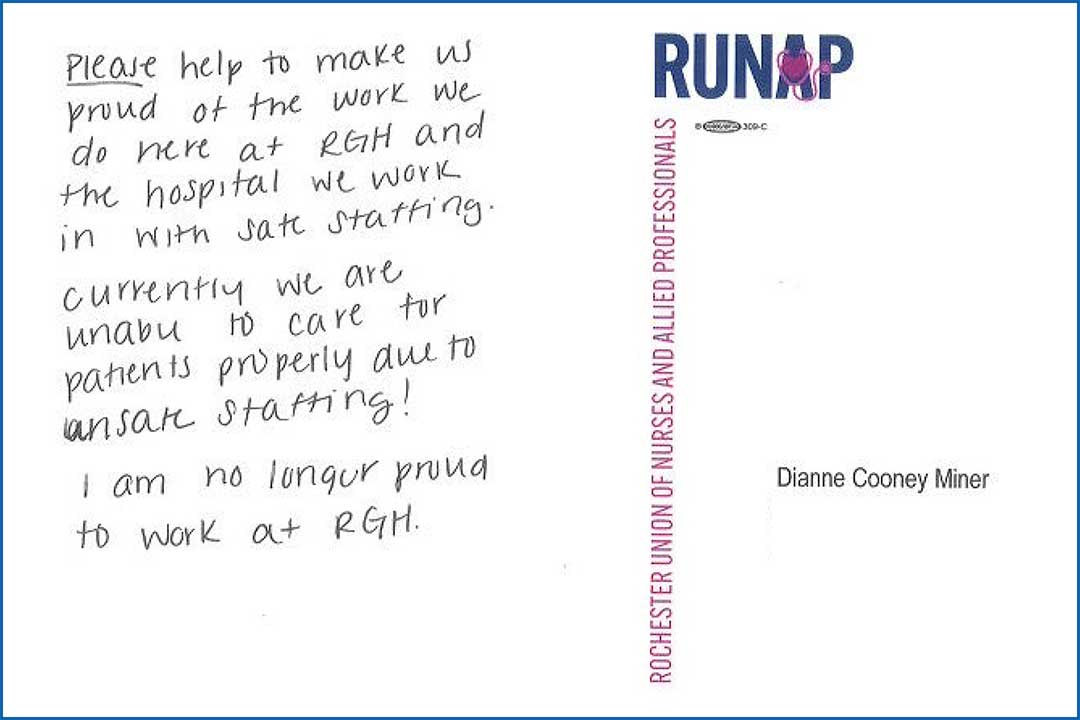 Please help to make us
proud of the work we
do here at RGH and
the hospital we work
in with safe staffing.
currently we are
unable to care for
patients properly due to
unsafe staffing!
I am no longer proud
to work at RGH.
RUNAP
309-C
ROCHESTER UNION OF NURSES AND ALLIED PROFESSIONALS
Dianne Cooney Miner